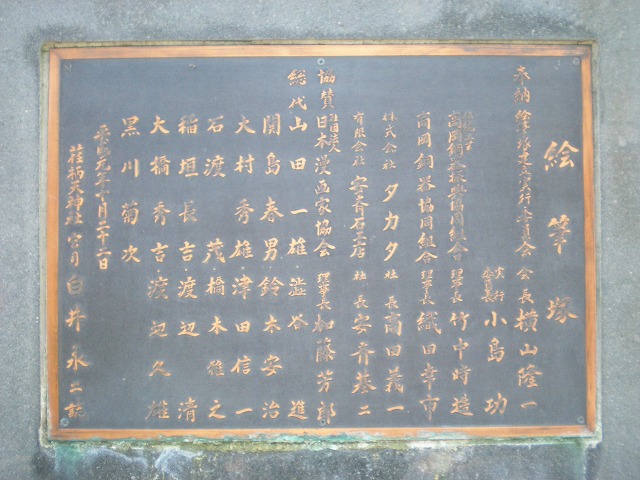 絵筆塚
奉納 絵筆塚建立実行委員会 会長 横山隆一
実行委員長 小島功
高岡銅器 協同組合 理事長 竹中時造
高岡銅器協同組合 理事長 織田幸市
株式会社 タカタ 社長 高田義一
有限会社 安斉石工店 社長 安斉基二
協賛 社団法人 日本漫画家協会 理事長 加藤芳郎
総代 山田一雄・澁谷進
関島春男・鈴木安治
大村秀雄・津田信一
石渡茂・橋本雅之
稲垣長吉・渡辺清
大橋秀吉・渡辺久雄
黒川菊次
平成元年 月二十二日
荏柄天神社 宮司 白井永二 記